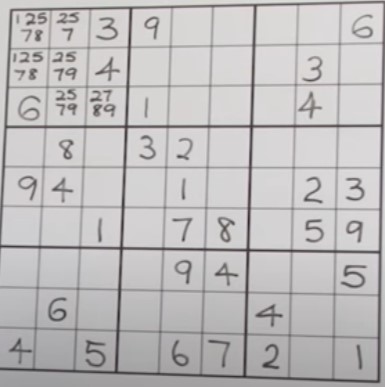 125 78 25 7 3 9 6
125 78 25 79 4 3
6 25 79 27 89 1 4
8 3 2
9 4 1 2 3
1 7 8 5 9
9 4 5
6 4
4 5 6 7 2 1